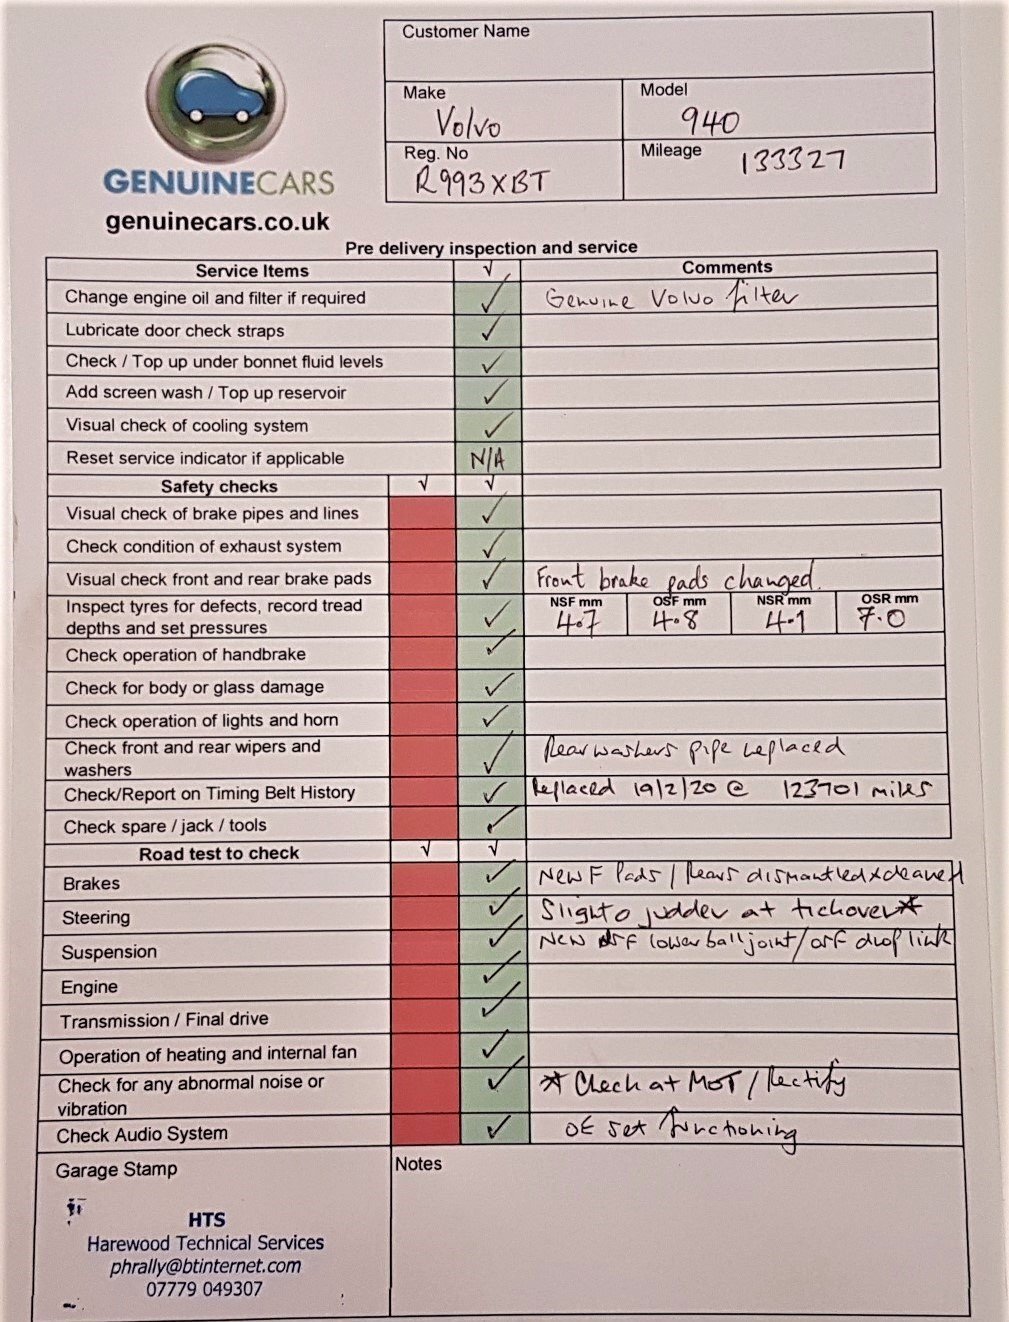 Customer Name
Make
Volvo
Model
940
Reg. No
R993XBT
Mileage
133327
GENUINECARS
genuinecars.co.uk
Pre delivery inspection and service
Service Items √ Comments
Change engine oil and filter if required ✓ Genuine Volvo filter
Lubricate door check straps ✓
Check / Top up under bonnet fluid levels ✓
Add screen wash / Top up reservoir ✓
Visual check of cooling system ✓
Reset service indicator if applicable N/A
Safety checks √ √
Visual check of brake pipes and lines ✓
Check condition of exhaust system ✓
Visual check front and rear brake pads ✓ Front brake pads changed.
Inspect tyres for defects, record tread
depths and set pressures ✓
NSF mm OSF mm NSR mm OSR mm
4.7 4.8 4.1 7.0
Check operation of handbrake ✓
Check for body or glass damage ✓
Check operation of lights and horn ✓
Check front and rear wipers and
washers ✓ Rear washers pipe replaced
Check/Report on Timing Belt History ✓ Replaced 19/2/20 @ 123701 miles
Check spare / jack / tools ✓
Road test to check √ √
Brakes ✓ New F Pads / Rears dismantled & cleaned
Steering ✓ Slight judder at tickover*
Suspension ✓ New lower ball joint / OSF drop link
Engine ✓
Transmission / Final drive ✓
Operation of heating and internal fan ✓
Check for any abnormal noise or
vibration ✓ * Check at MOT / Rectify
Check Audio System ✓ OE set functioning
Garage Stamp
Notes
HTS
Harewood Technical Services
phrally@btinternet.com
07779 049307